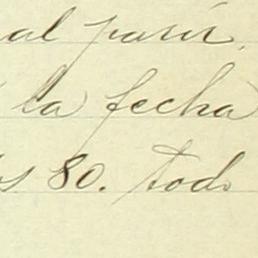 al parir,
la fecha
os 80. tod